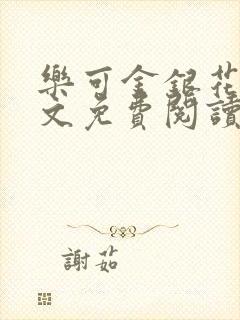 樂可金銀花
文免費閱讀
謝茹